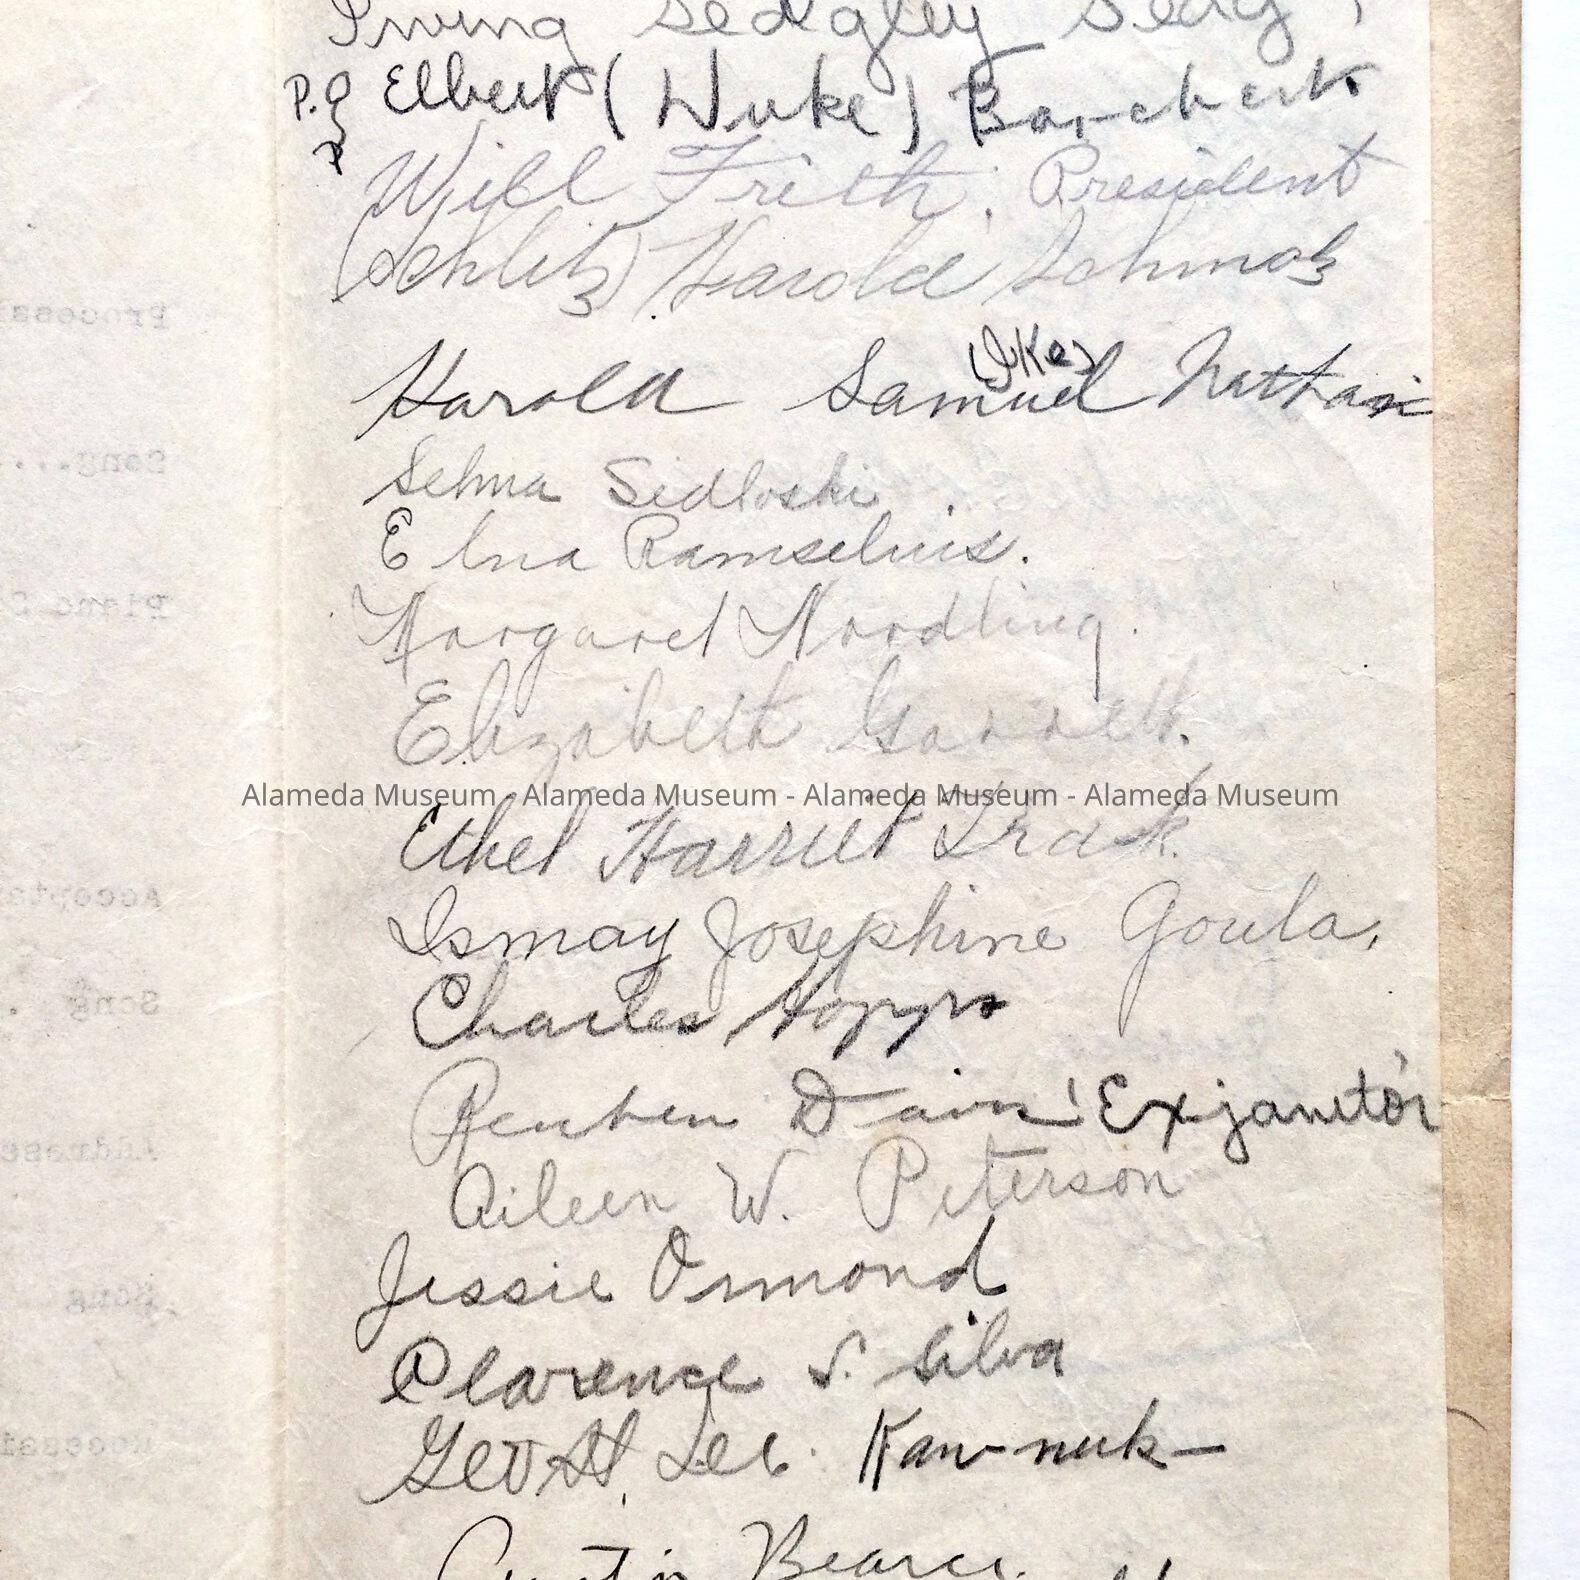 Irving Sedgley
P.G Elbert (Duke) Borchert
Will Frith. President
(Schlitz) Harold Schmolz
(Ike)
Harold Samuel Nathan
Selma Sidloski
Elna Ramselius.
Margaret Nordling.
Elizabeth Garrett.
Alameda Museum - Alameda Museum - Alameda Museum - Alameda Museum
Ethel Harriet Trask.
Ismay Josephine Goula.
Charles Hopps
Reuben Davis! Exjanitor
Aileen W. Peterson
Jessie Ormond
Clarence S. Silva
Geo H. Lee. Kaw-nuk-
Bearce.
Processi
Song...
Piano
Accepta
Song .
Address
Song